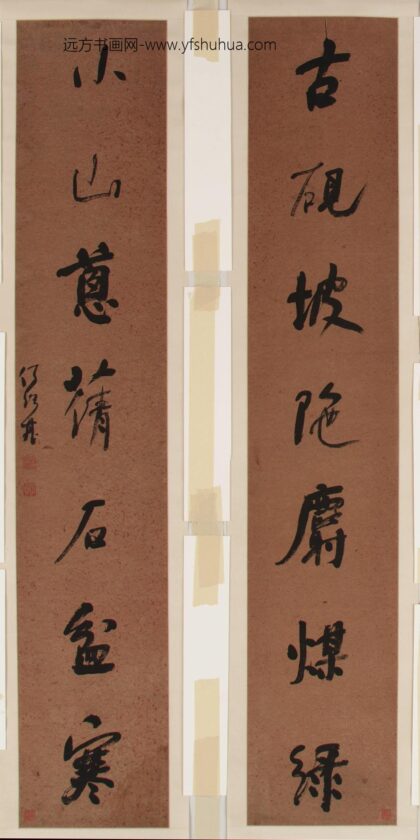 远方书画网-www.yfshuhua.com
古硯坡陁麝煤綠
小山蔥蒨石盆寒
何紹基